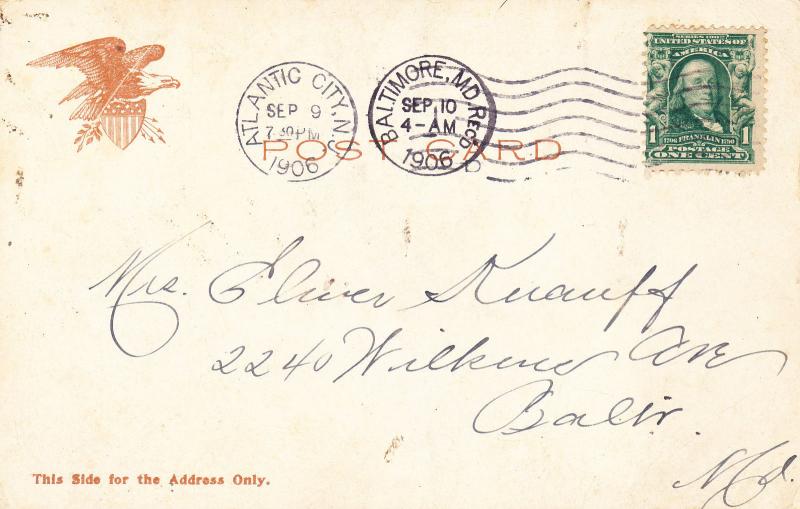 ATLANTIC CITY, N.J.
SEP 9
7 30 PM
1906
BALTIMORE, MD. REC'D
SEP 10
4-AM
1906
POST CARD
SERIES 1902
UNITED STATES OF
AMERICA
1706 FRANKLIN 1790
POSTAGE
1 ONE CENT 1
Mrs. Elmer Knauff
2240 Wilkens Ave
Balto.
Md.
This Side for the Address Only.